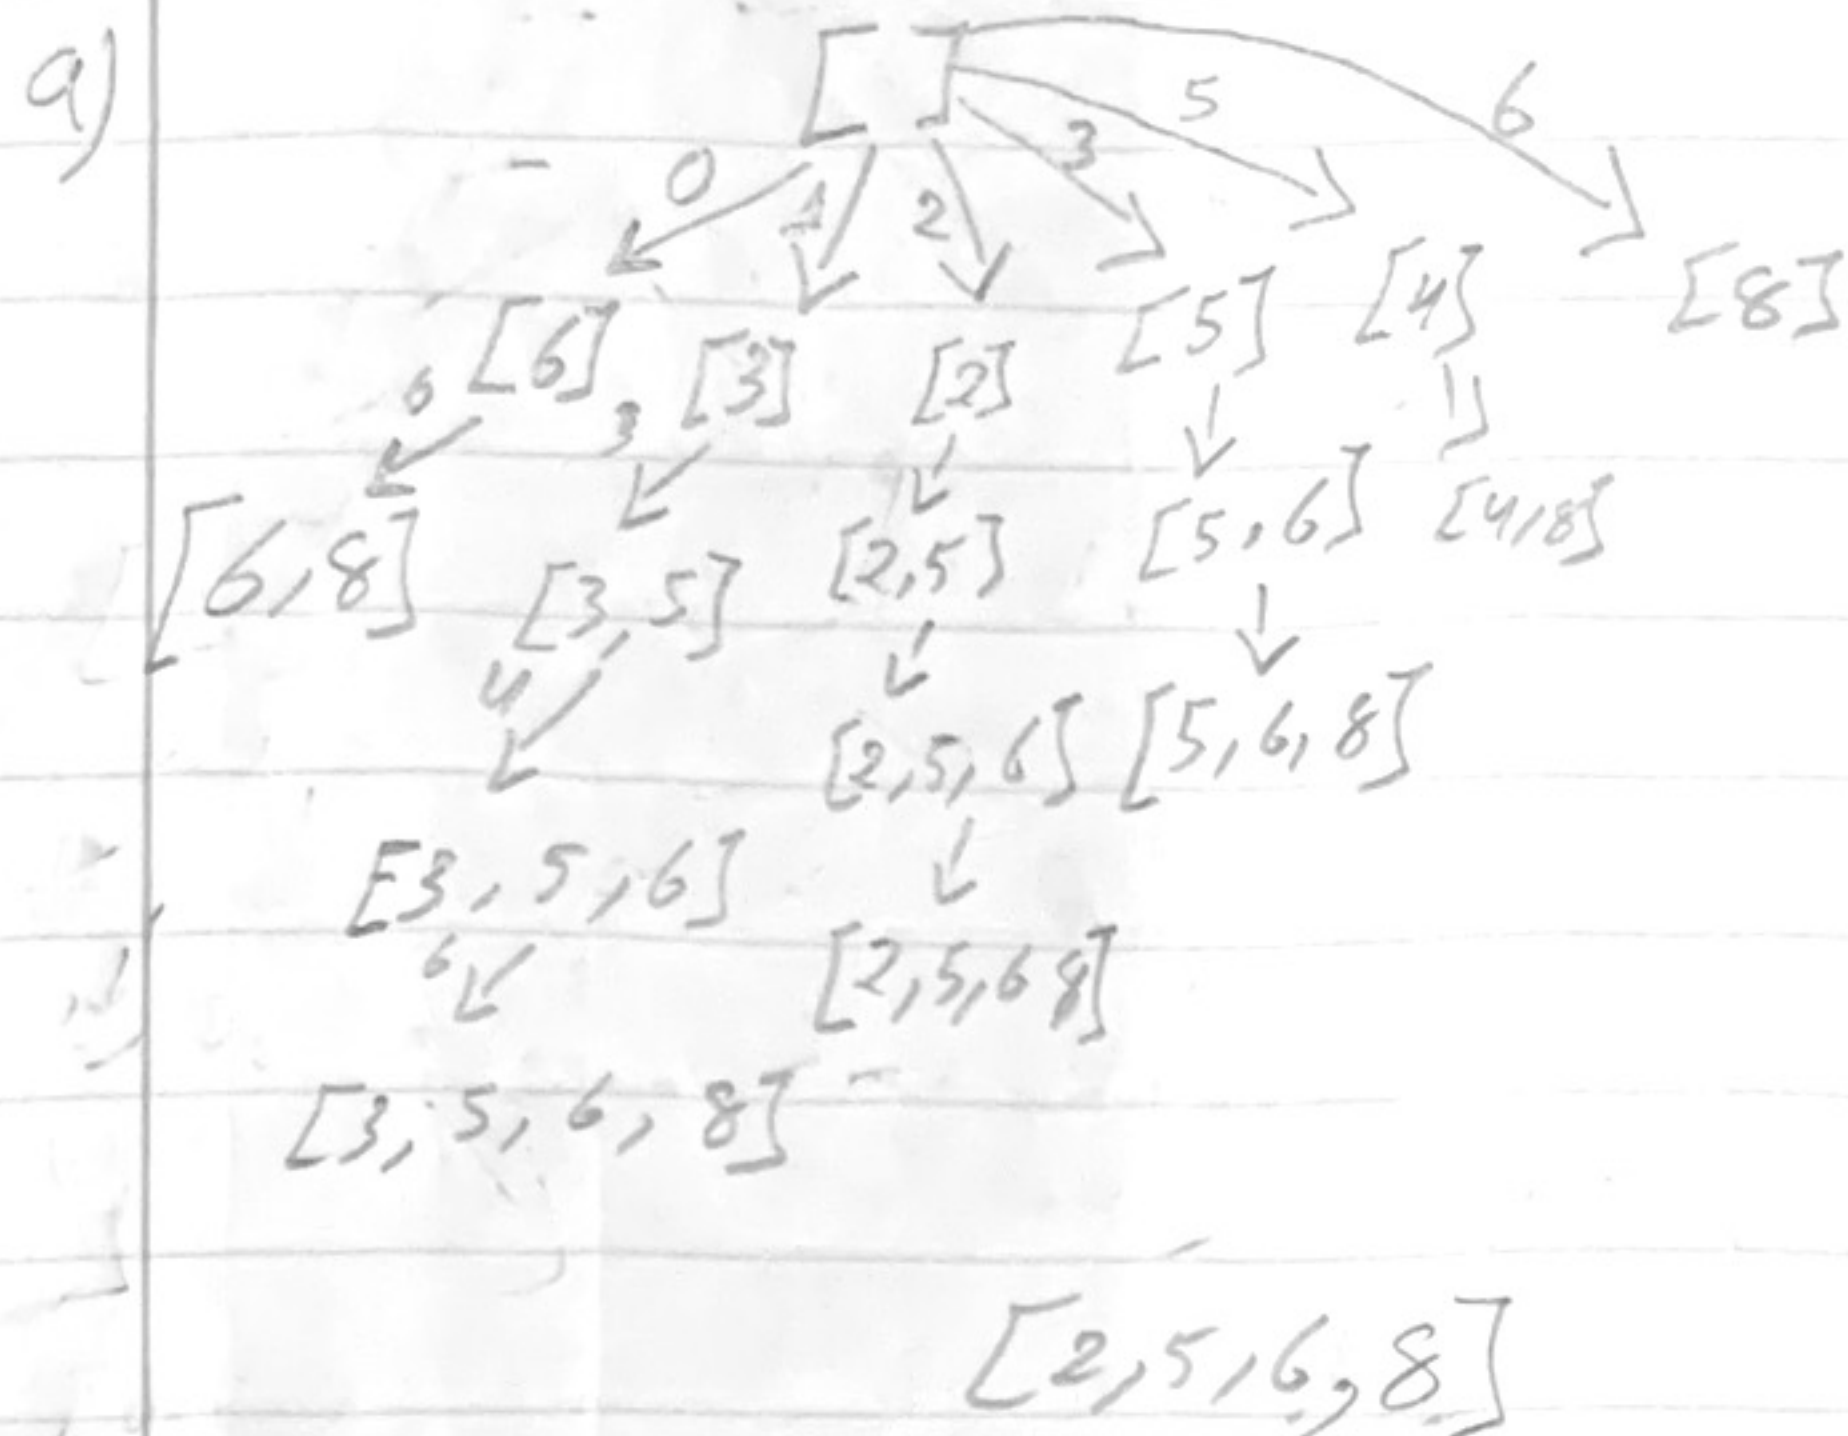 a)
[ ]
0 1 2 3 5 6
[6] [3] [2] [5] [4] [8]
6 3
[6,8] [3,5] [2,5] [5,6] [4,8]
4
[2,5,6] [5,6,8]
[3,5,6]
6 [2,5,6 8]
[3,5,6,8]
[2,5,6,8]